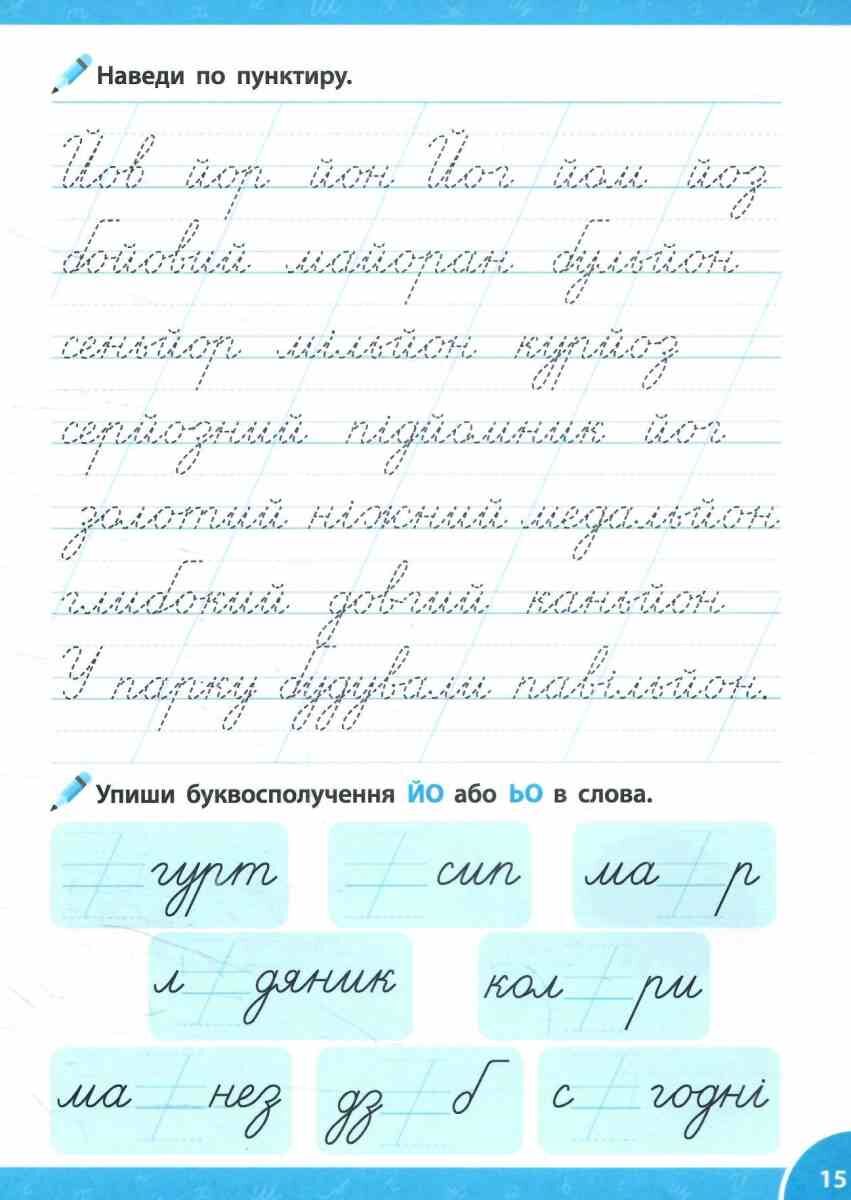 Наведи по пунктиру.
Йов йор йон Йог йом йоз
бойовий майоран бульйон
сеньйор мільйон курйоз
серйозний підйомник йог
золотий ніжний медальйон
глибокий довгий каньйон
У парку будували павільйон.
Упиши буквосполучення ЙО або ЬО в слова.
гурт сип ма р
л дяник кол ри
ма нез дз б с годні
15